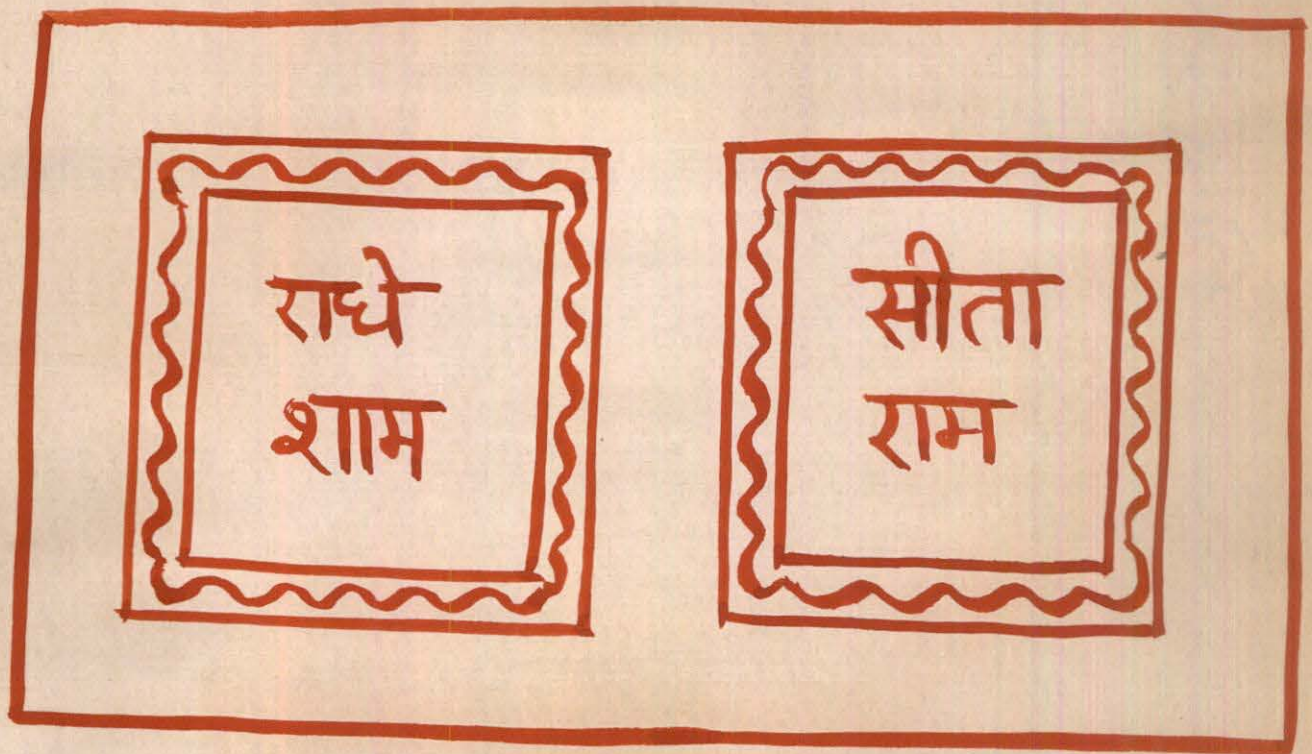 राधे
शाम
सीता
राम